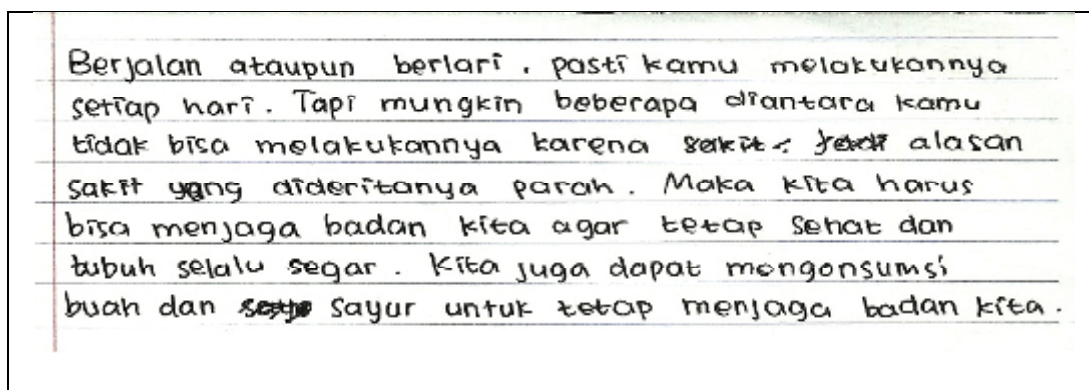 Berjalan ataupun berlari. pasti kamu melakukannya
setiap hari. Tapi mungkin beberapa diantara kamu
tidak bisa melakukannya karena sakit. alasan
sakit yang dideritanya parah. Maka kita harus
bisa menjaga badan kita agar tetap sehat dan
tubuh selalu segar. Kita juga dapat mengonsumsi
buah dan sayur untuk tetap menjaga badan kita.